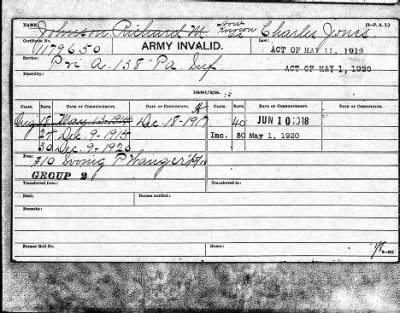 NAME: Johnson Richard M now known as Charles Jones (3-P. A. I.)
Certificate No. 1179650 ARMY INVALID. Law: ACT OF MAY 11, 1912
Service: Pvt A. 138" Pa. Inf. ACT OF MAY 1, 1920
Disability:
ISSUES:
CLASS. RATE. DATE OF COMMENCEMENT. DATE OF CERTIFICATE. CLASS. RATE. DATE OF COMMENCEMENT. DATE OF CERTIFICATE.
Orig 18 May 13-1912 Dec. 18-1917 40 JUN 10 1918
24 Dec. 9-1915 Inc. 50 May 1, 1920
30 Dec. 9-1920
Fees: $10 Irving P Wanger
GROUP 2
Transferred from: Transferred to:
Died: Bureau notified:
Remarks:
Former Roll No. Home: